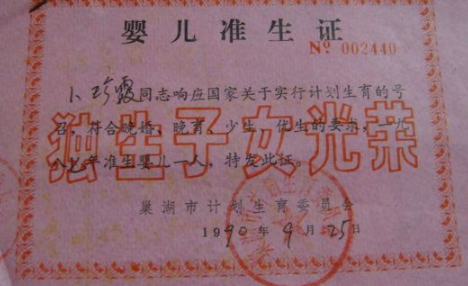 婴儿准生证
№ 002440
卜珍霞同志响应国家关于实行计划生育的号
召，符合晚婚、晚育、少生、优生的要求，一九
八七年准生婴儿一人，特发此证。
独生子女光荣
巢湖市计划生育委员会
1990年9月25日